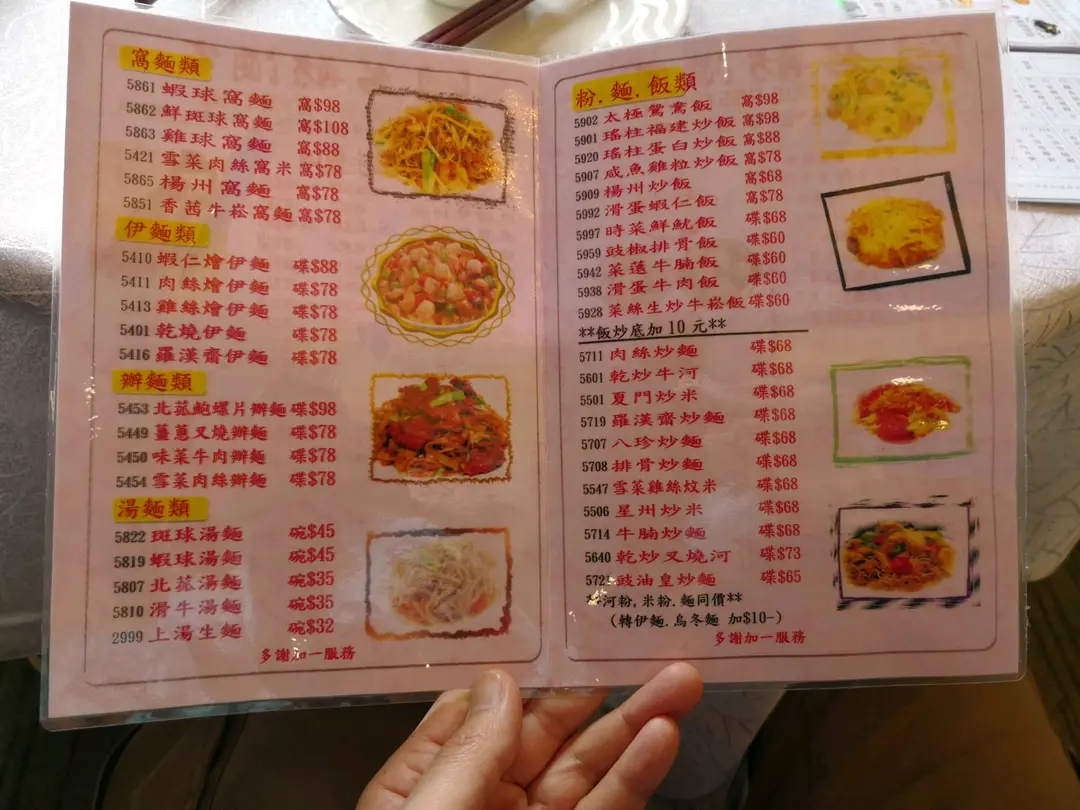 窩麵類
5861 蝦球窩麵 窩$98
5862 鮮斑球窩麵 窩$108
5863 雞球窩麵 窩$88
5421 雪菜肉絲窩米 窩$78
5865 楊州窩麵 窩$78
5851 香茜牛崧窩麵 窩$78
伊麵類
5410 蝦仁燴伊麵 碟$88
5411 肉絲燴伊麵 碟$78
5413 雞絲燴伊麵 碟$78
5401 乾燒伊麵 碟$78
5416 羅漢齋伊麵 碟$78
辦麵類
5453 北菰鮑螺片辦麵 碟$98
5449 薑蔥叉燒辦麵 碟$78
5450 味菜牛肉辦麵 碟$78
5454 雪菜肉絲辦麵 碟$78
湯麵類
5822 斑球湯麵 碗$45
5819 蝦球湯麵 碗$45
5807 北菰湯麵 碗$35
5810 滑牛湯麵 碗$35
2999 上湯生麵 碗$32
多謝加一服務
粉.麵.飯類
5902 太極鴛鴦飯 窩$98
5901 瑤柱福建炒飯 窩$98
5920 瑤柱蛋白炒飯 窩$88
5907 咸魚雞粒炒飯 窩$78
5909 楊州炒飯 窩$68
5992 滑蛋蝦仁飯 窩$78
5997 時菜鮮魷飯 碟$68
5959 豉椒排骨飯 碟$60
5942 菜薳牛腩飯 碟$60
5938 滑蛋牛肉飯 碟$60
5928 菜絲生炒牛崧飯 碟$60
**飯炒底加 10 元**
5711 肉絲炒麵 碟$68
5601 乾炒牛河 碟$68
5501 夏門炒米 碟$68
5719 羅漢齋炒麵 碟$68
5707 八珍炒麵 碟$68
5708 排骨炒麵 碟$68
5547 雪菜雞絲炆米 碟$68
5506 星州炒米 碟$68
5714 牛腩炒麵 碟$68
5640 乾炒叉燒河 碟$73
豉油皇炒麵 碟$65
**河粉,米粉.麵同價**
(轉伊麵.烏冬麵 加$10-)
多謝加一服務